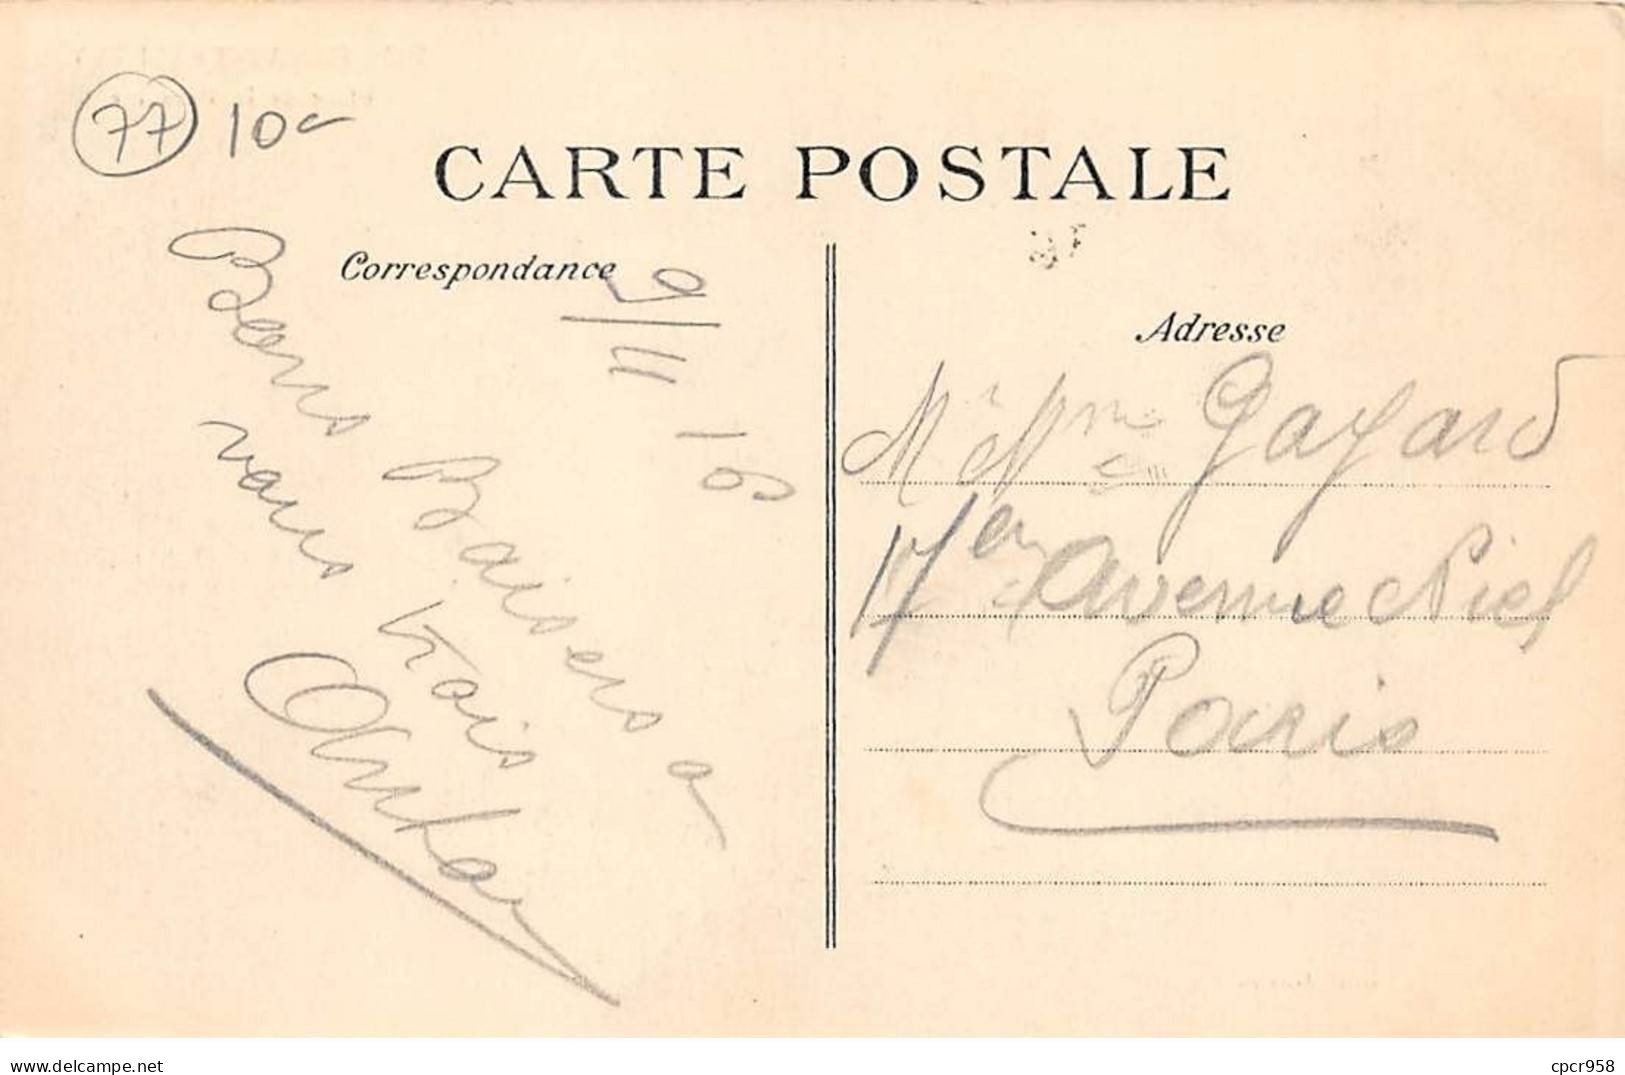 77 10c
CARTE POSTALE
Correspondance
9/11 16
Bons Baisers a
vous trois
Adresse
Gayard
17 Avenue Niel
Paris
www.delcampe.net
cpcr958